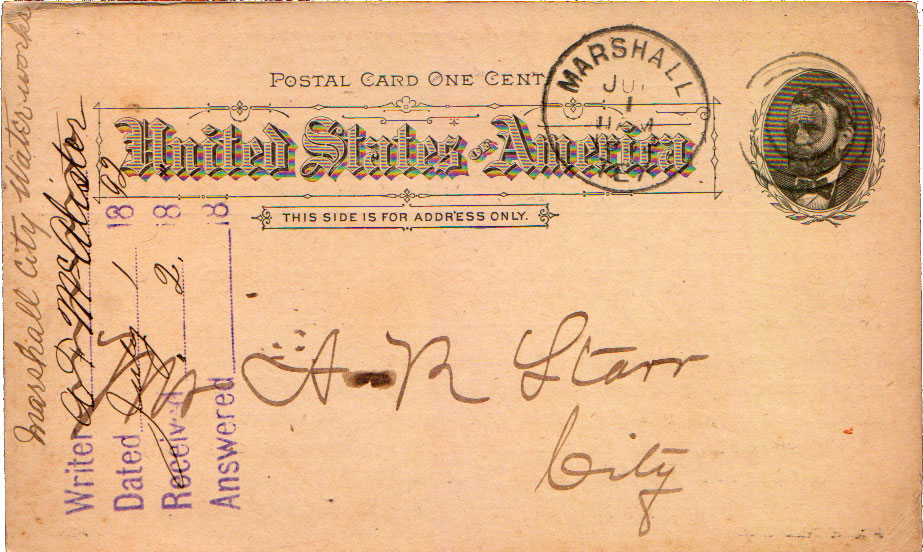 POSTAL CARD ONE CENT
United States of America
THIS SIDE IS FOR ADDRESS ONLY.
MARSHALL
JUL
1
A-R Starr
City
Marshall City Water works
Writer McAlister
Dated July 1 1892
Received 2, 18
Answered 18